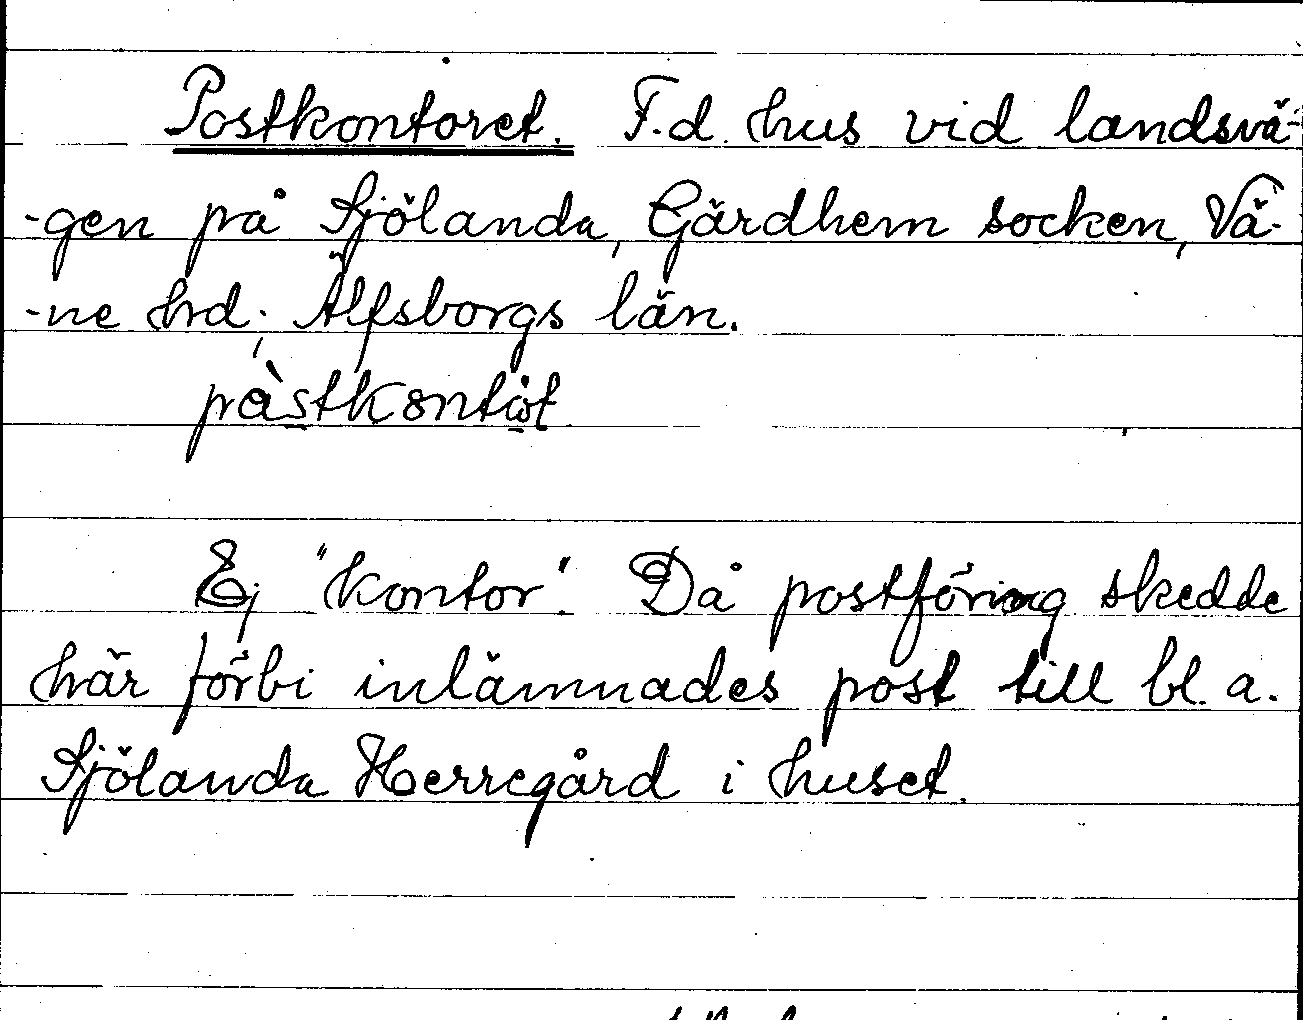 Postkontoret. F.d. hus vid landsvä-
-gen på Sjölanda, Gärdhem socken, Vä-
-ne hd; Älfsborgs län.

Ej "kontor". Då postföring skedde
här förbi inlämnades post till bl. a.
Sjölanda Herregård i huset.